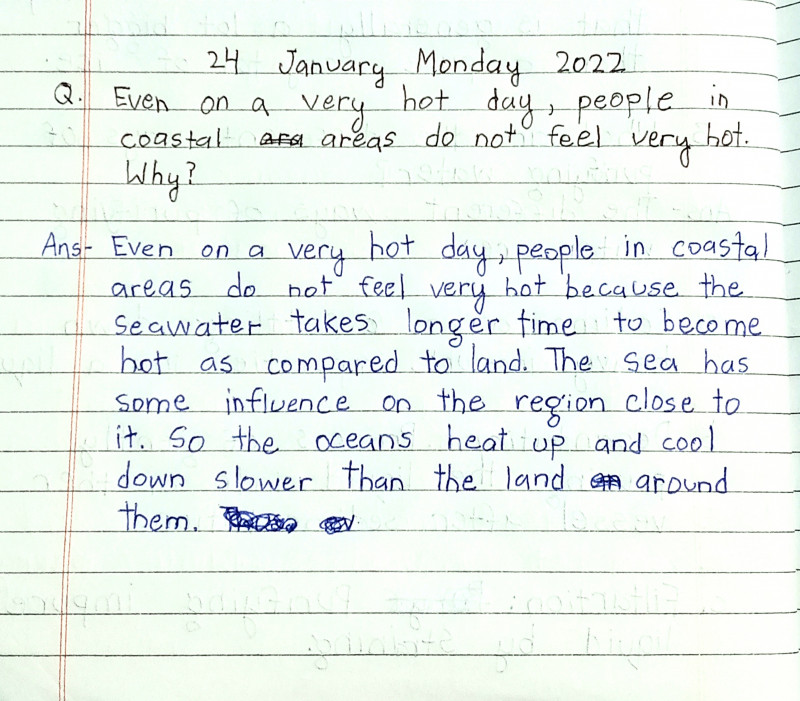 24 January Monday 2022
Q. Even on a very hot day, people in
coastal areas do not feel very hot.
Why?
Ans- Even on a very hot day, people in coastal
areas do not feel very hot because the
seawater takes longer time to become
hot as compared to land. The sea has
some influence on the region close to
it. So the oceans heat up and cool
down slower than the land around
them.